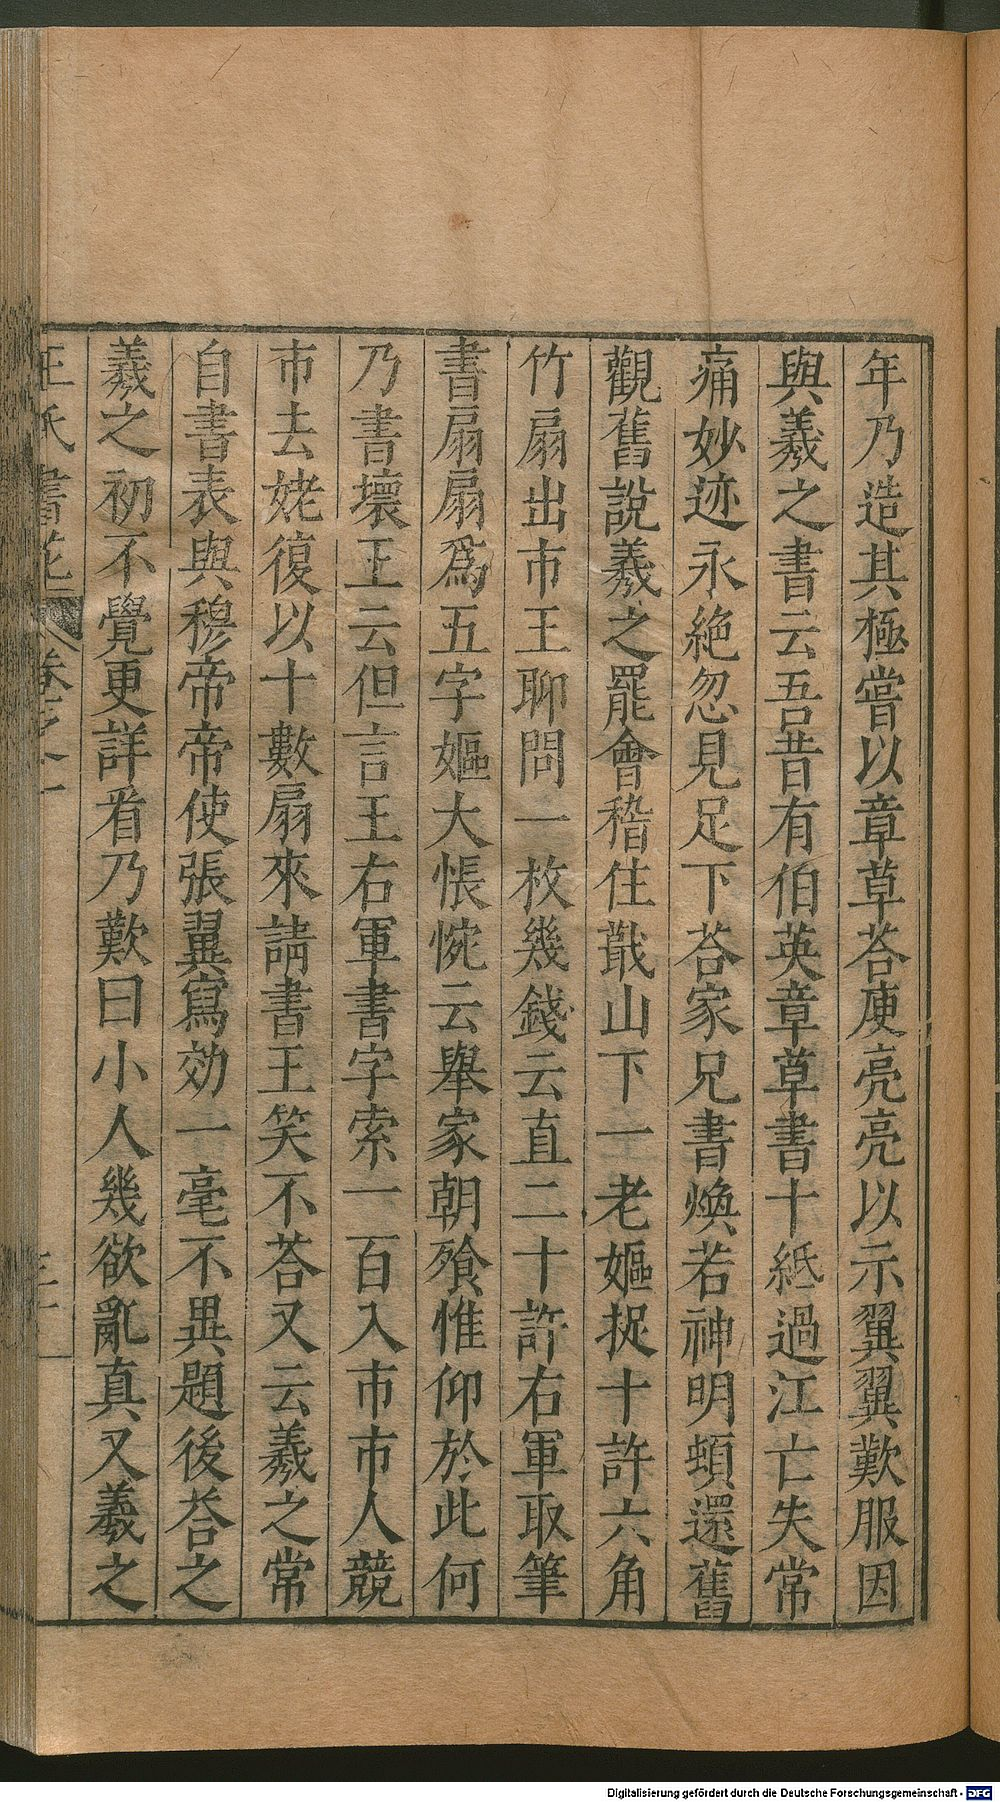 年乃造其極嘗以章草荅庾亮亮以示翼翼歎服因
與羲之書云吾昔有伯英章草書十紙過江亡失常
痛妙迹永絶忽見足下荅家兄書煥若神明頓還舊
觀舊說羲之罷會稽住蕺山下一老嫗捉十許六角
竹扇出市王聊問一枚幾錢云直二十許右軍取筆
書扇扇爲五字嫗大悵惋云舉家朝飡惟仰於此何
乃書壞王云但言王右軍書字索一百入市市人競
市去姥復以十數扇來請書王笑不荅又云羲之常
自書表與穆帝帝使張翼寫効一毫不異題後荅之
羲之初不覺更詳看乃歎曰小人幾欲亂真又羲之
王氏書苑 卷之一
Digitalisierung gefördert durch die Deutsche Forschungsgemeinschaft - DFG